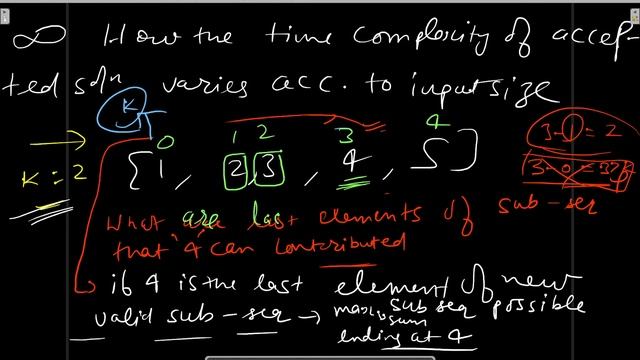 ∞ How the time complexity of accep-
ted solⁿ varies acc. to input size
K
0 1 2 3 4
K = 2 [1, 2, 3, 4, 5]
3-1 = 2
3-0 =
What are last elements of sub-seq
that 4 can contributed
if 4 is the last element of new possible
valid sub-seq → maxm sum sub seq
ending at 4